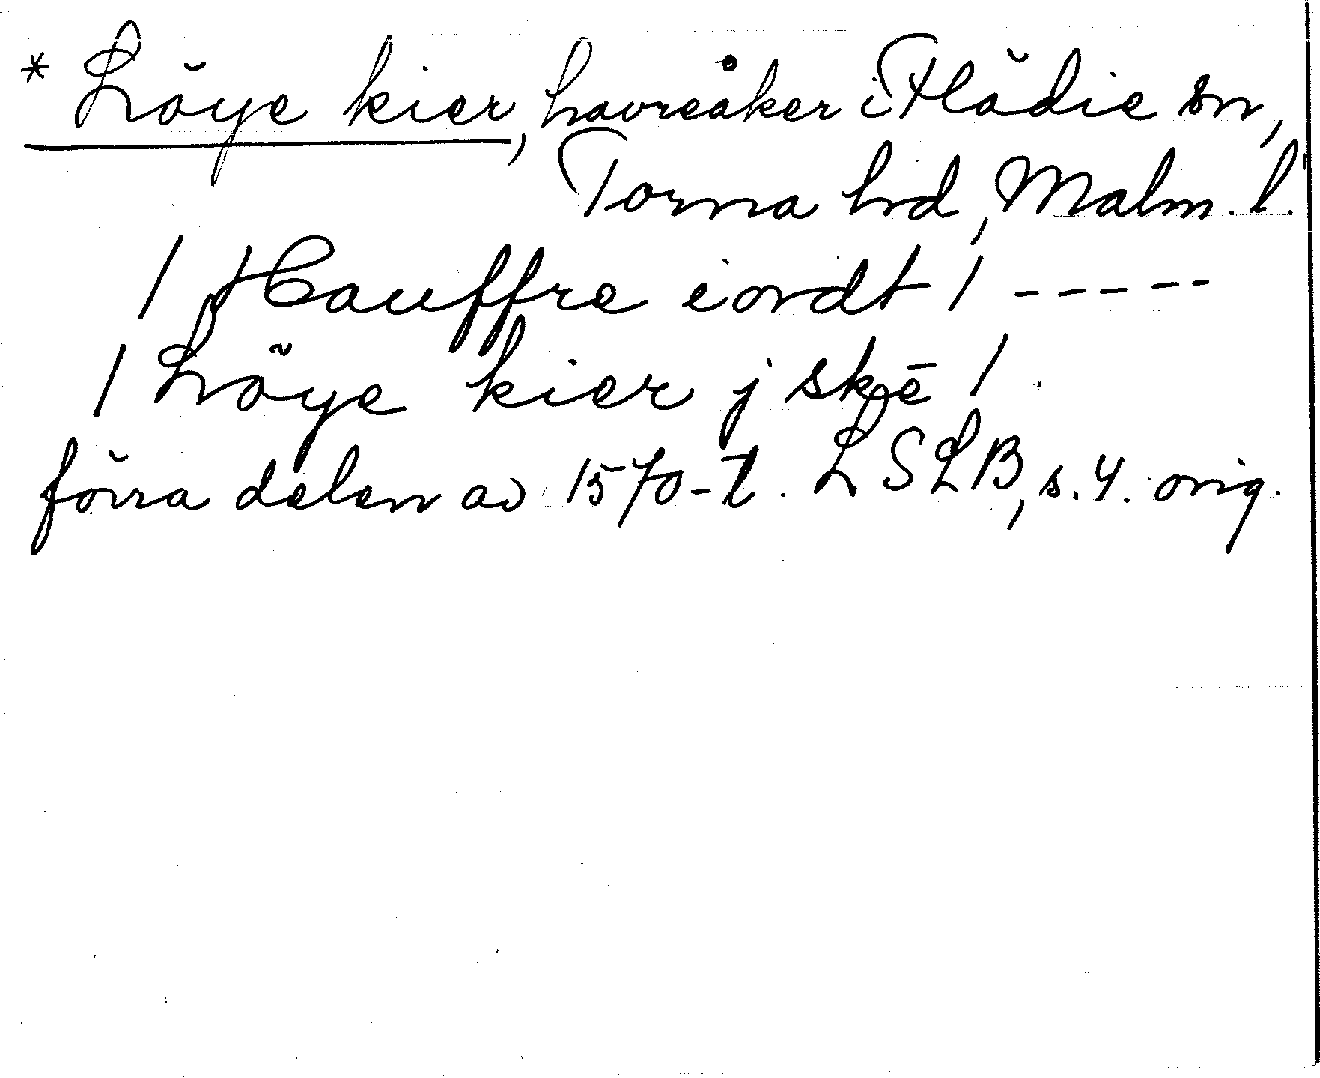 * Löye kier, havreåker i Flädie sn,
Torna hrd, Malm. l.
/ Hauffre iordt / -----
/ Löye kier j skē /
förra delen av 1570-t. LSLB, s. 4. orig.